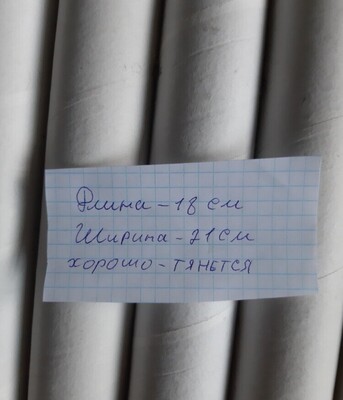 Длина - 18 см
Ширина - 21 см
хорошо - тянется